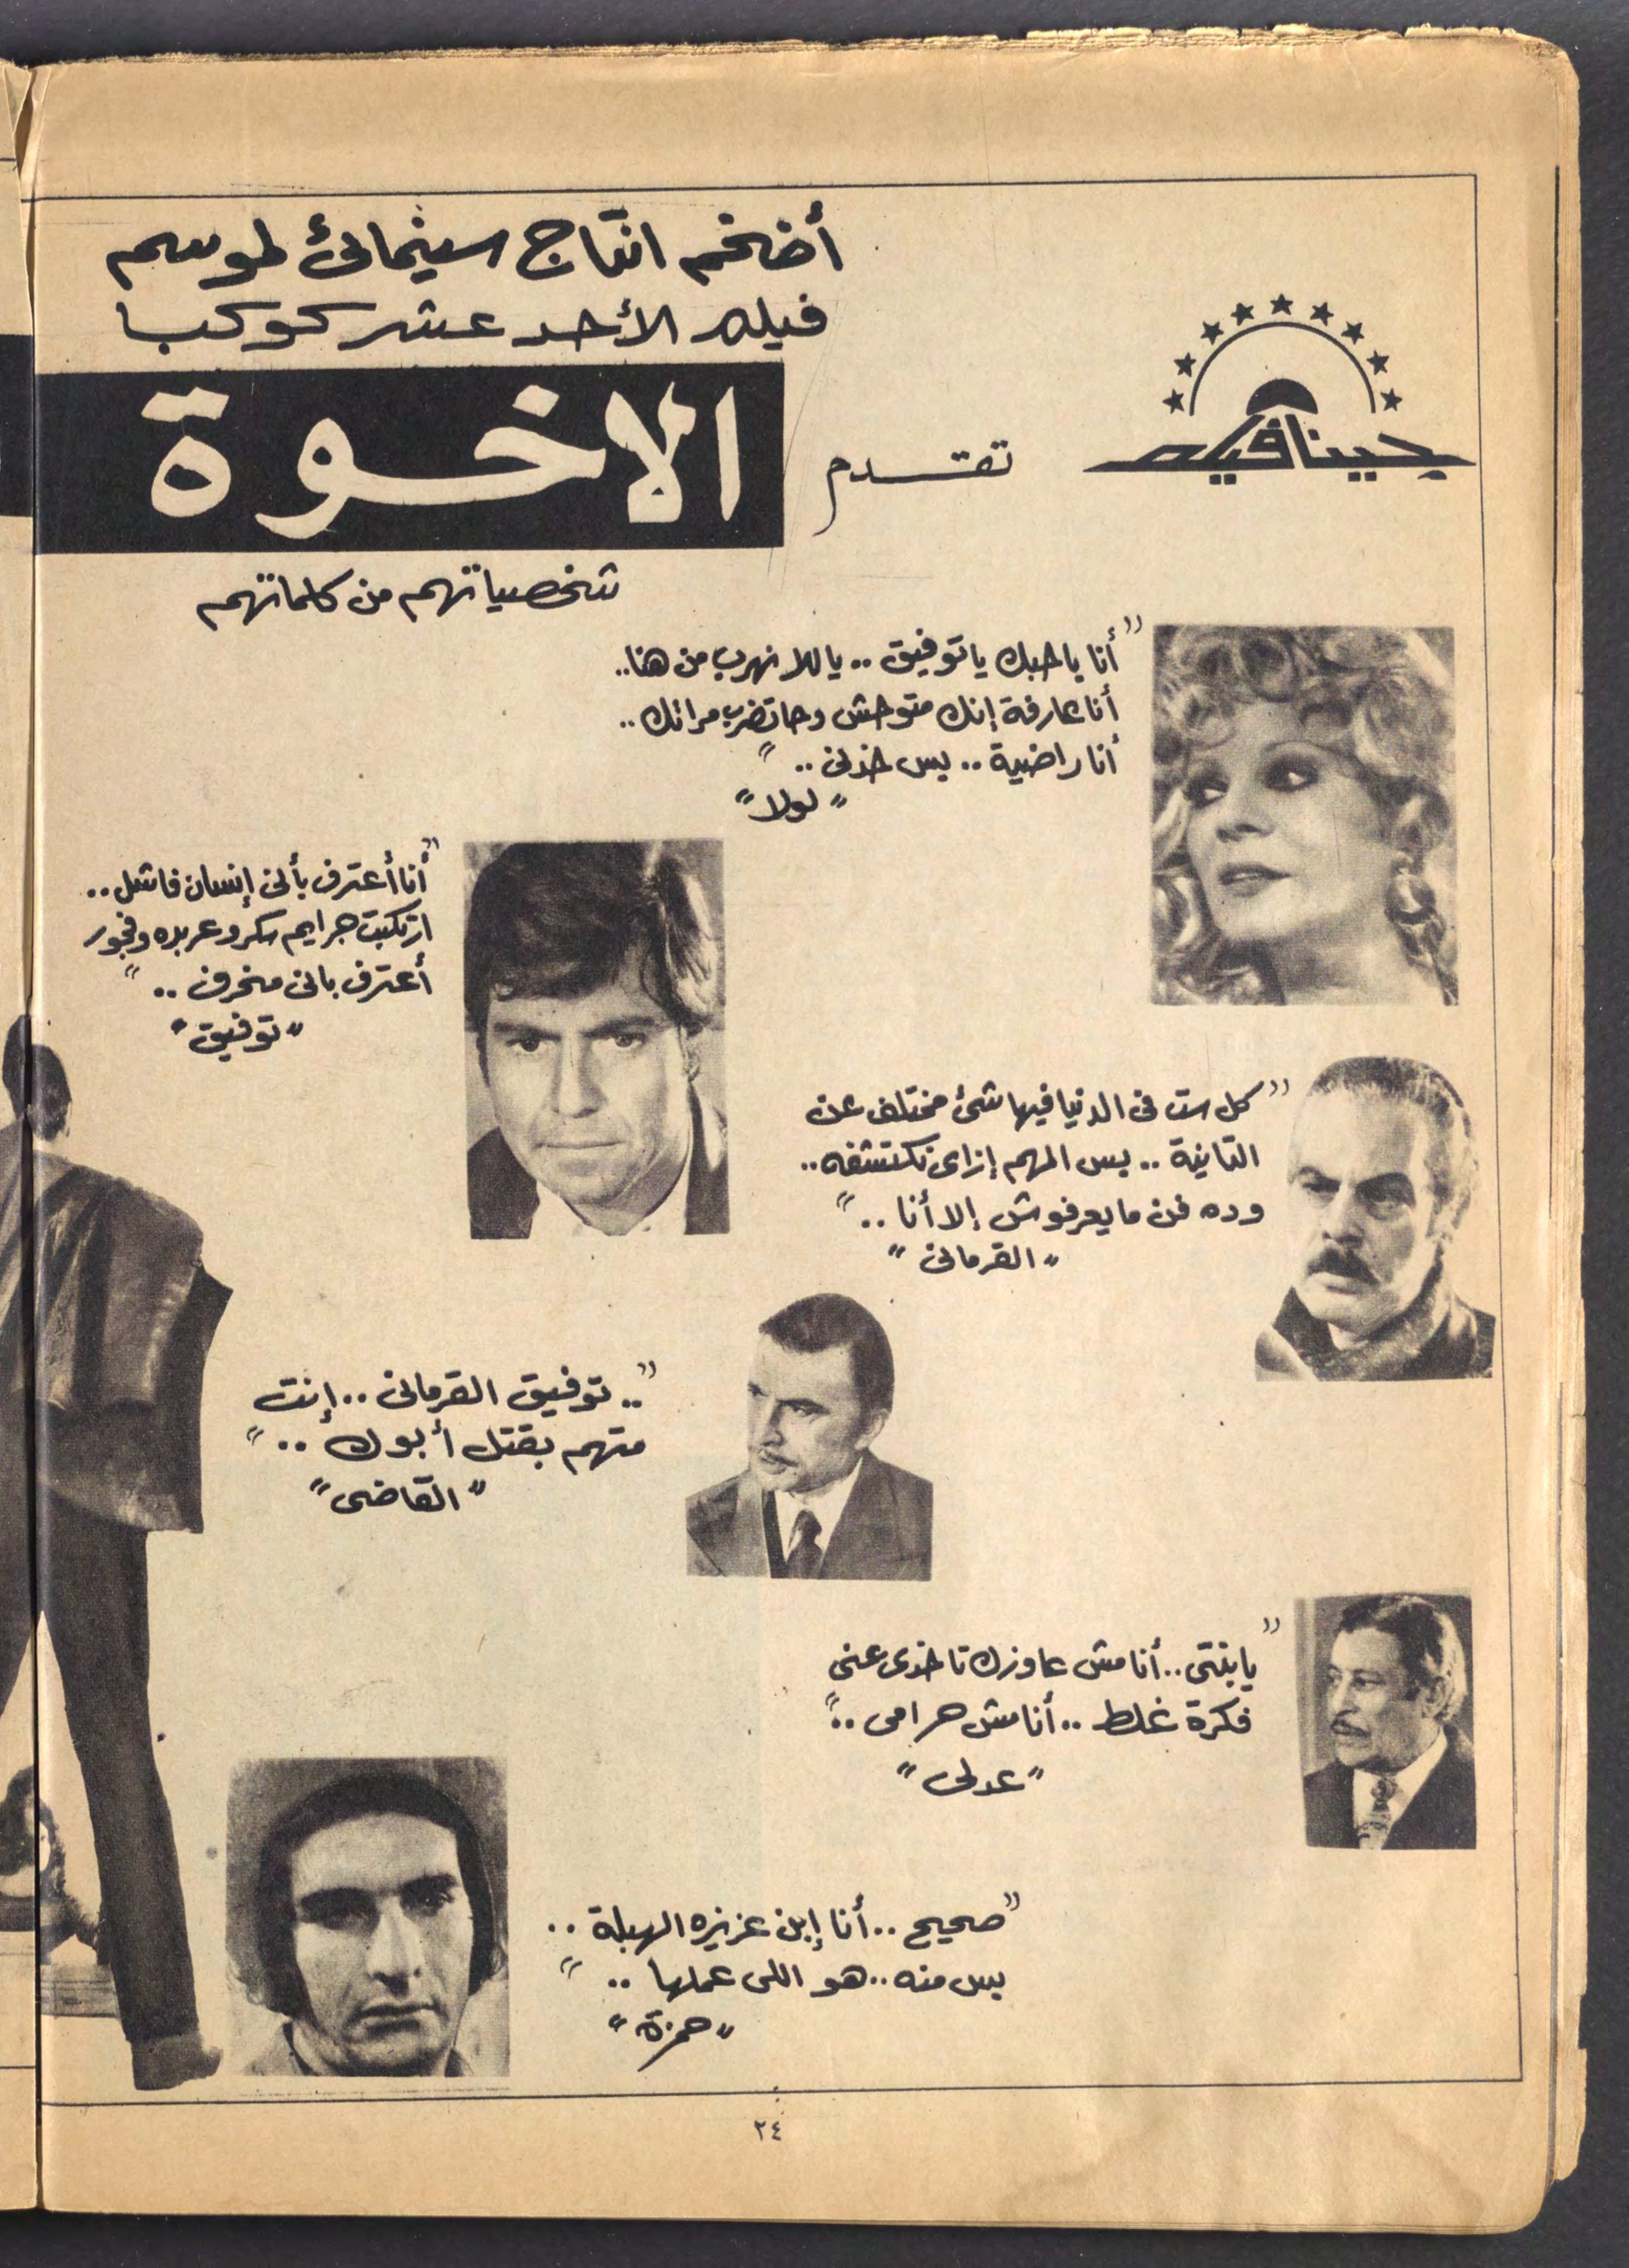 أضخم انتاج سينمائى لموسم
فيلم الأحد عشر كوكبا
جينافيلم
تقدم
الاخوة
شخصياتهم من كلماتهم
"أنا باحبك يا توفيق .. ياللا نهرب من هنا..
أنا عارفة إنك متوحش وحاتضرب مراتك..
أنا راضية .. بس خدنى .."
"لولا"
"أنا أعترف بأنى إنسان فاشل..
ارتكبت جرايم سكر وعربده وفجور
أعترف بانى منحرف .."
"توفيق"
"كل ست فى الدنيا فيها شئ مختلف عن
التانية .. بس المهم إزاى تكتشفه..
وده فن ما يعرفوش إلا أنا .."
"القرمانى"
".. توفيق القرمانى .. إنت
متهم بقتل أبوك .."
"القاضى"
"يابنتى .. أنا مش عاوزك تاخدى عنى
فكرة غلط .. أنا مش حرامى .."
"عدلى"
"صحيح .. أنا إبن عزيزه الهبلة ..
بس منه .. هو اللى عملها .."
"حمزة"
٢٤